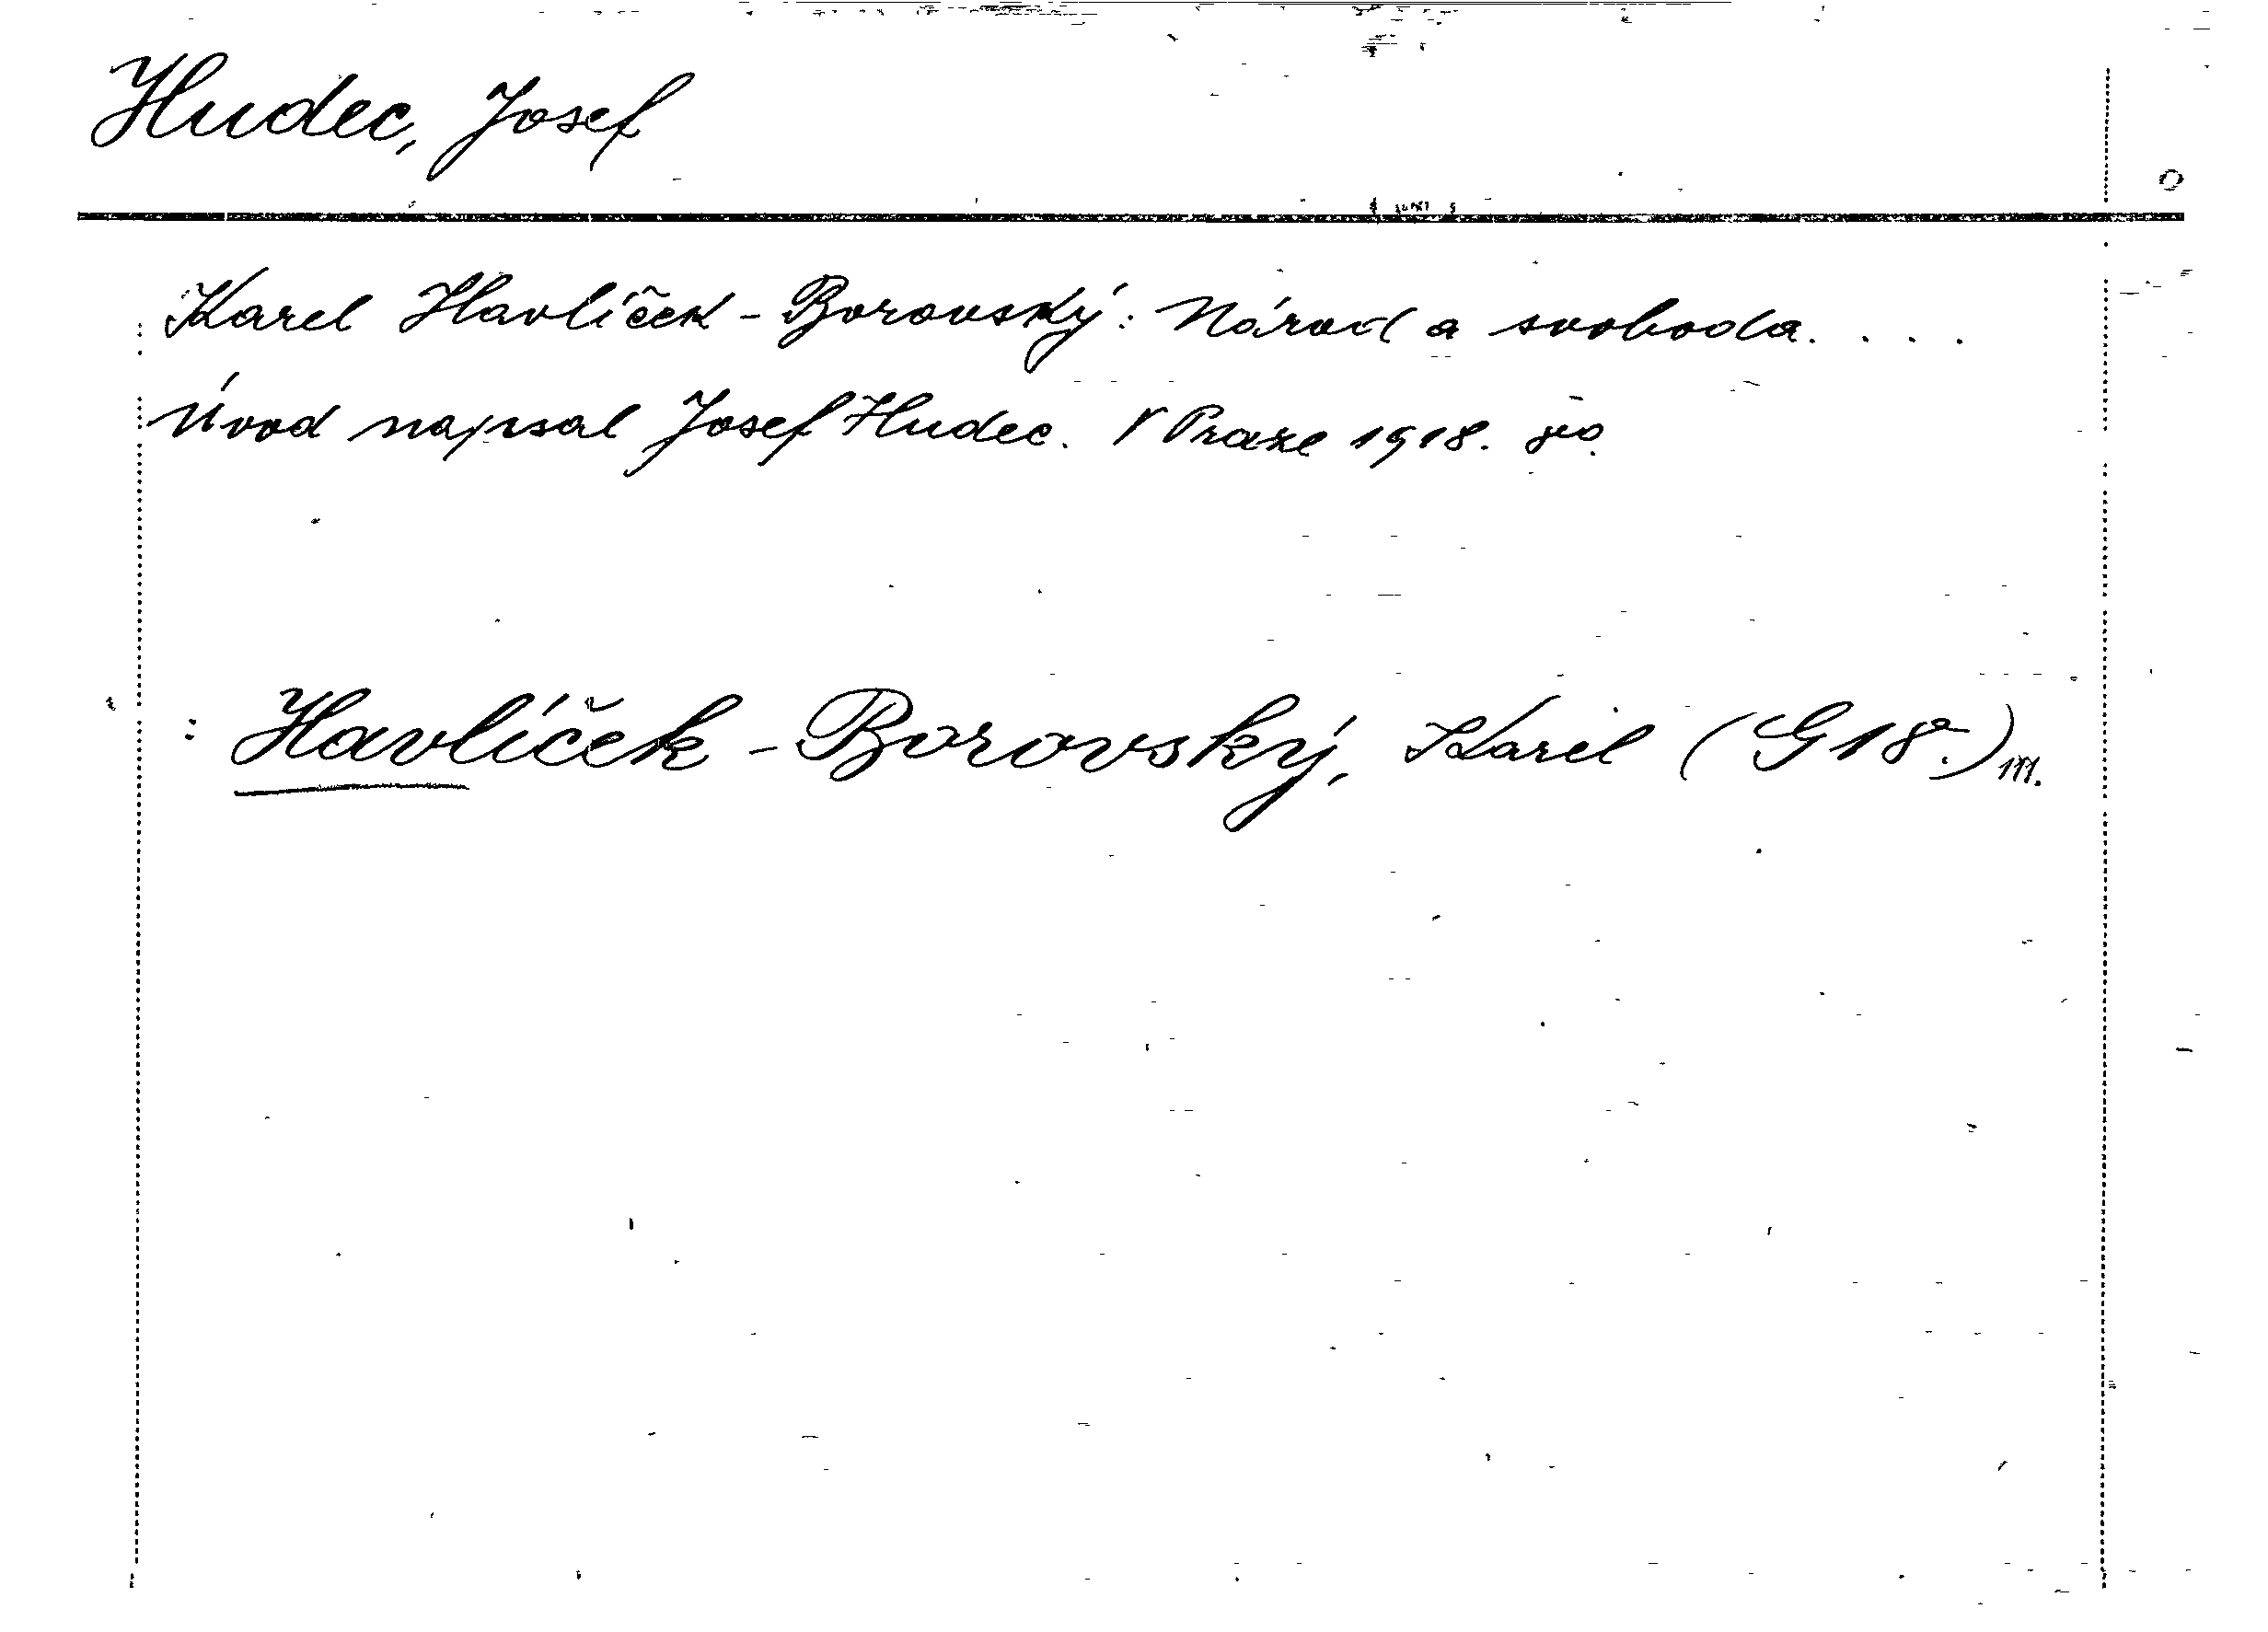 Hudec, Josef
Karel Havlíček-Borovský: Národ a svoboda. . . .
Úvod napsal Josef Hudec. V Praze 1918. 8º.
: Havlíček-Borovský, Karel (G 18.) m.